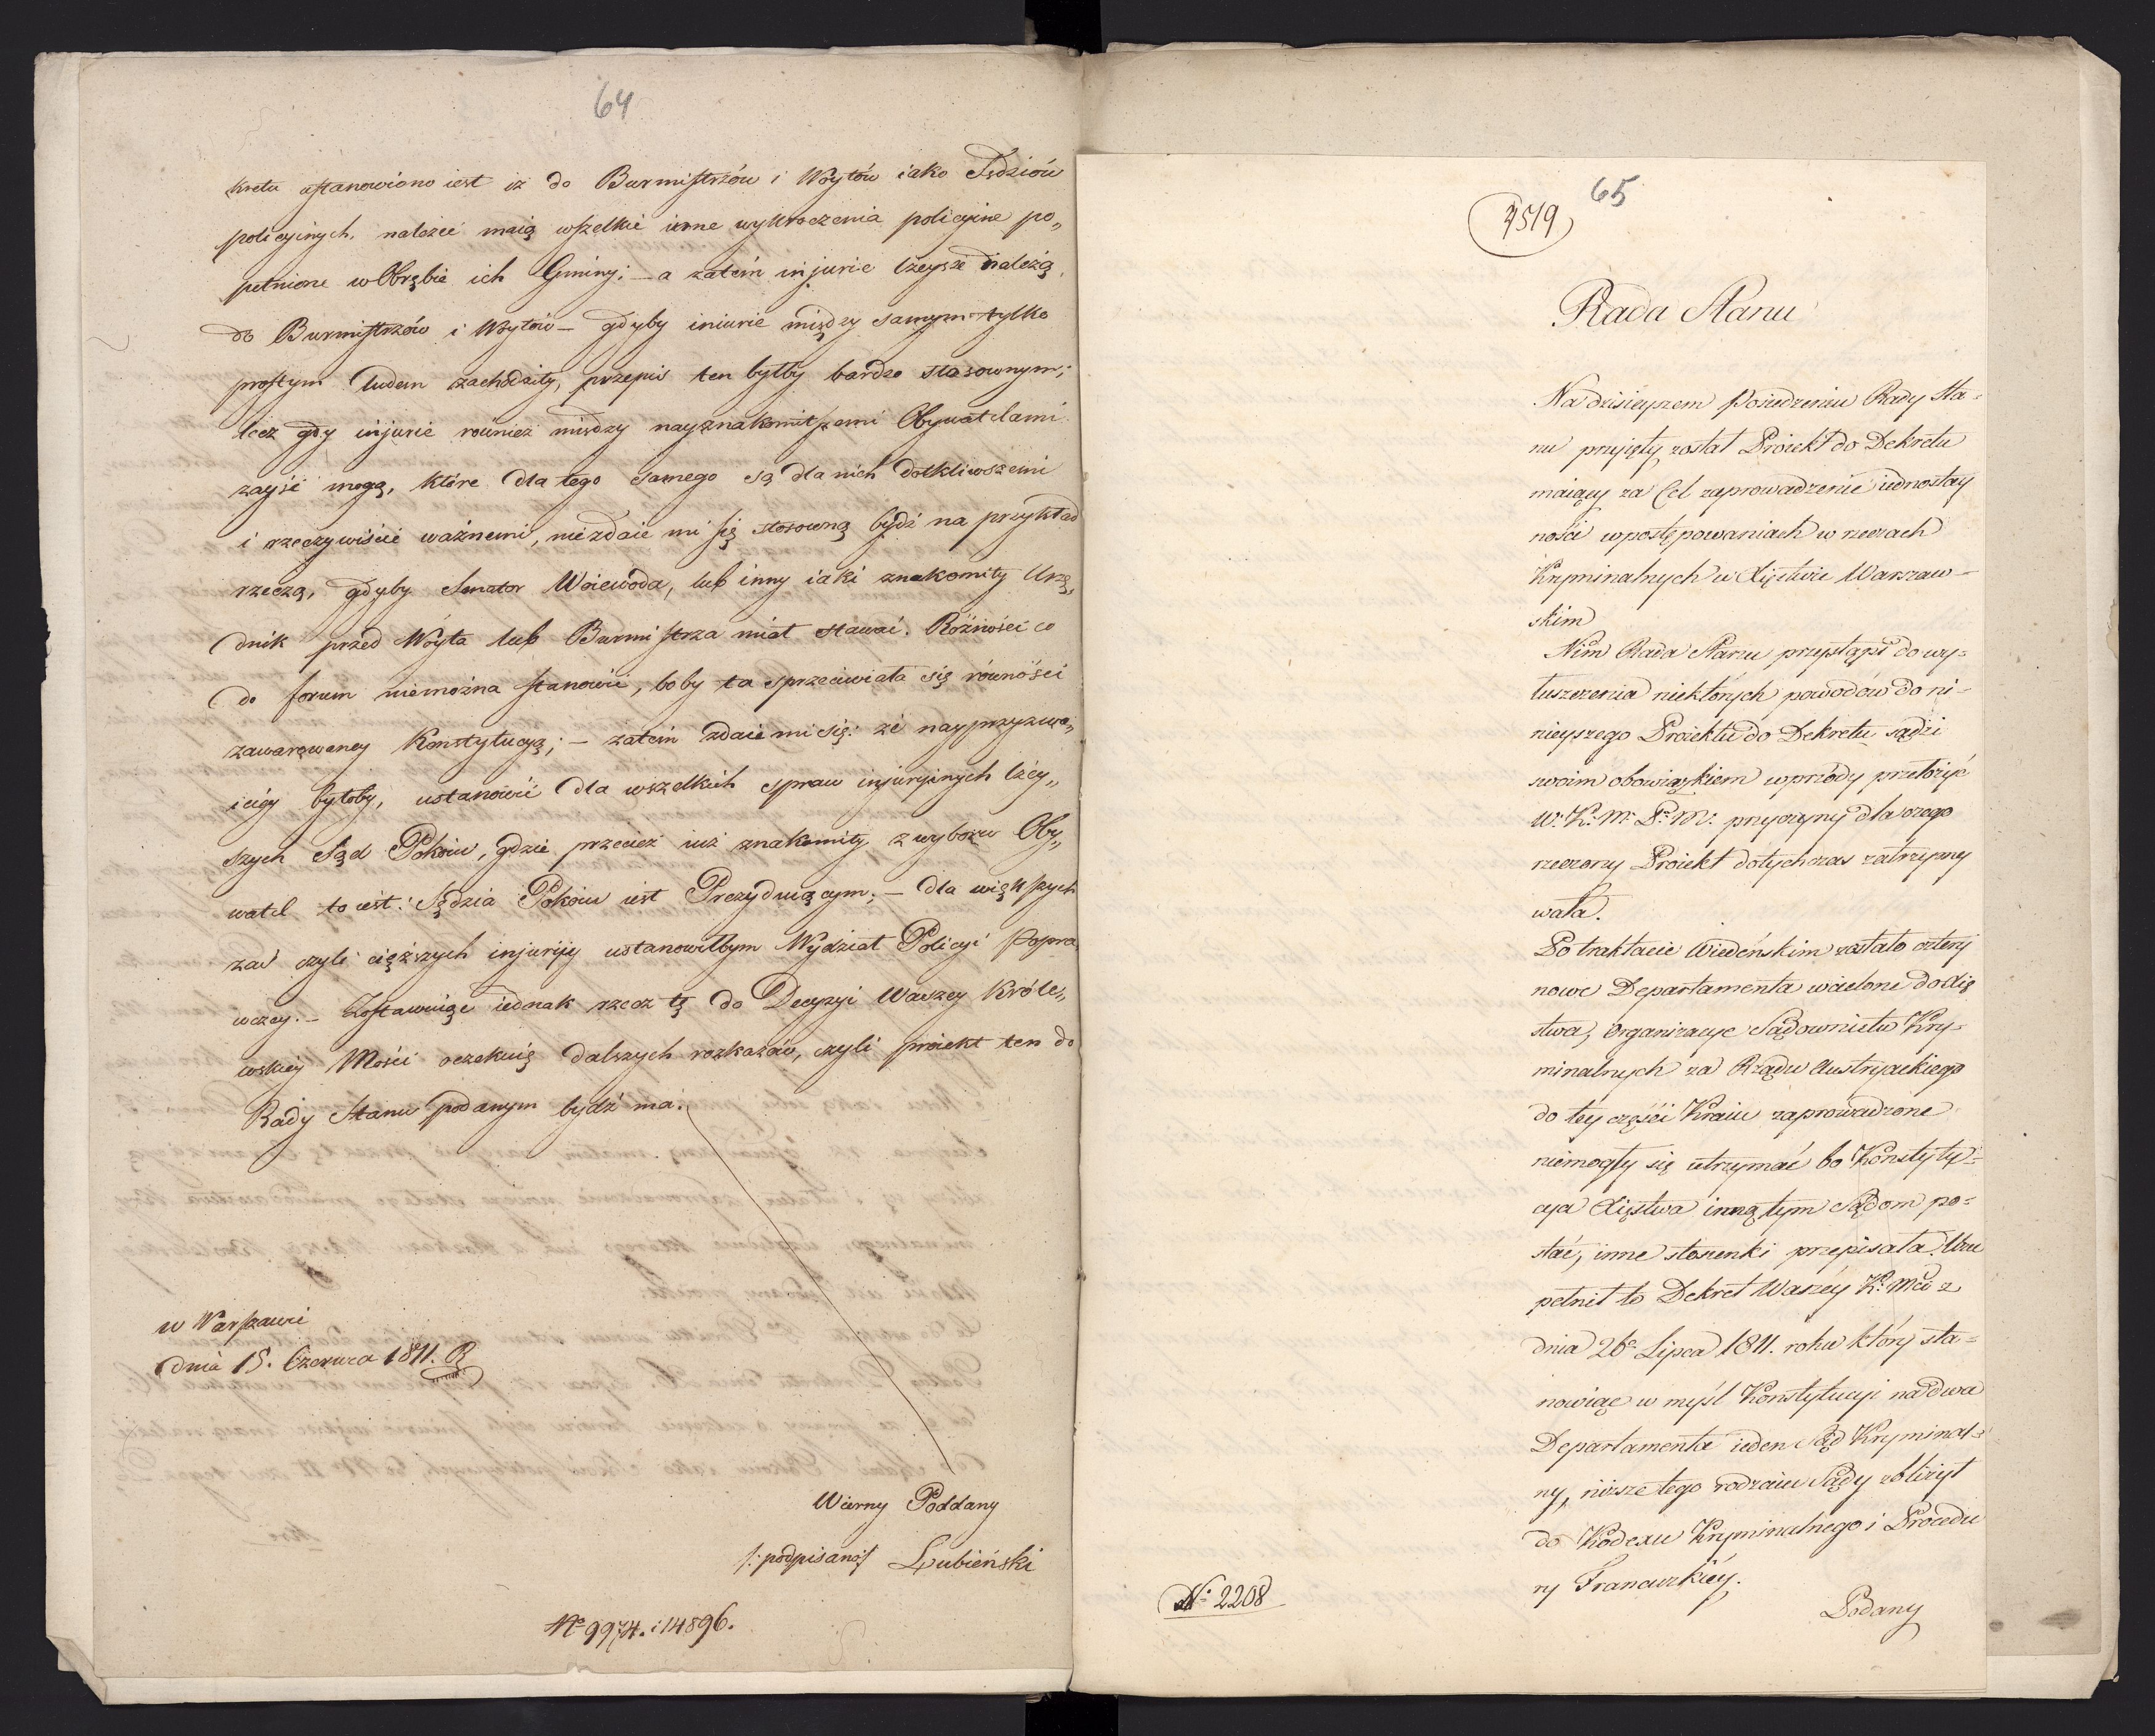 64
kretu ustanowiono iest iż do Burmistrzów i Woytów iako Sędziów
policyinych, należeć maią wszelkie inne wykroczenia policyine po„
pełnione w Obrębie ich Gminy; – a zatém injurie lżeysze należą
do Burmistrzów i Woytów – gdyby iniurie między samym tylko
prostym ludem zachodziły, przepis ten byłby bardzo stosownym;
lecz gdy injurie rownież między nayznakomitszemi Obywatelami
zayść mogą, które dla tego samego są dla nich dotkliwszemi
i rzeczywiście ważnemi, niezdaie mi się stosowną bydź na przykład
rzeczą, gdyby Senator Woiewoda, lub inny iaki znakomity Urzę„
dnik przed Wóyta lub Burmistrza miał stawać. Różności co
do forum niemożna stanowić, boby ta sprzeciwiała się równości
zawarowaney Konstytucyą; – zatém zdaie mi się: że nayprzyzwo„
iciéy byłoby, ustanowić dla wszelkich spraw injuryinych lżéy„
szych Sąd Pokoiu, gdzie przecież iuż znakomity z wyboru Oby„
watel to iest: Sędzia Pokoiu iest Prezyduiącym; – dla większych
zaś czyli cięższych injuriy ustanowiłbym Wydział Policyi Popra
wczey. – Zostawuiąc iednak rzecz tę do Decyzyi Waszey Króle„
wskiéy Mości oczekuię dalszych rozkazów, czyli proiekt ten do
Rady Stanu podanym bydź ma.
w Warszawie
dnia 15. Czerwca 1811. R
Wierny Poddany
/: podpisano :/ Łubieński
No 9974. i 14896.
65
4519
Rada Stanu
Na dzisieyszem Posiedzeniu Rady Sta=
nu przyięty został Proiekt do Dekretu
maiący za Cel zaprowadzenie iednostay
ności w postępowaniach w rzeczach
Kryminalnych w Xięstwie Warszaw–
skim
Nim Rada Stanu przystąpi do wy=
łuszczenia niektórych powodów do ni–
nieyszego Proiektu do Dekretu sądzi
swoim obowiązkiem wprzódy przełożyć
W. K. M. P. M. przyczyny dla czego
rzeczony Proiekt dotychczas zatrzymy
wała.
Po traktacie Wiedeńskim zostało cztery
nowe Departamenta wcielone do Xię
stwa, Organizacye Sądownictw Kry–
minalnych za Rządu Austryackiego
do tey części Kraiu zaprowadzone
niemogły się utrzymać bo Konstytu=
cya Xięstwa inną tym Sądom po=
stać, inne stosunki przepisała. Uzu
pełnił to Dekret Waszéy K. Mci z
dnia 26o Lipca 1811. roku który sta=
nowiąc w myśl Konstytucyi na dwa
Departamenta ieden Sąd Kryminal=
ny, niższe tego rodzaiu Sądy zbliżył
do Kodexu Kryminalnego i Procedu
ry Francuzkiéy.
Podany
No 2208